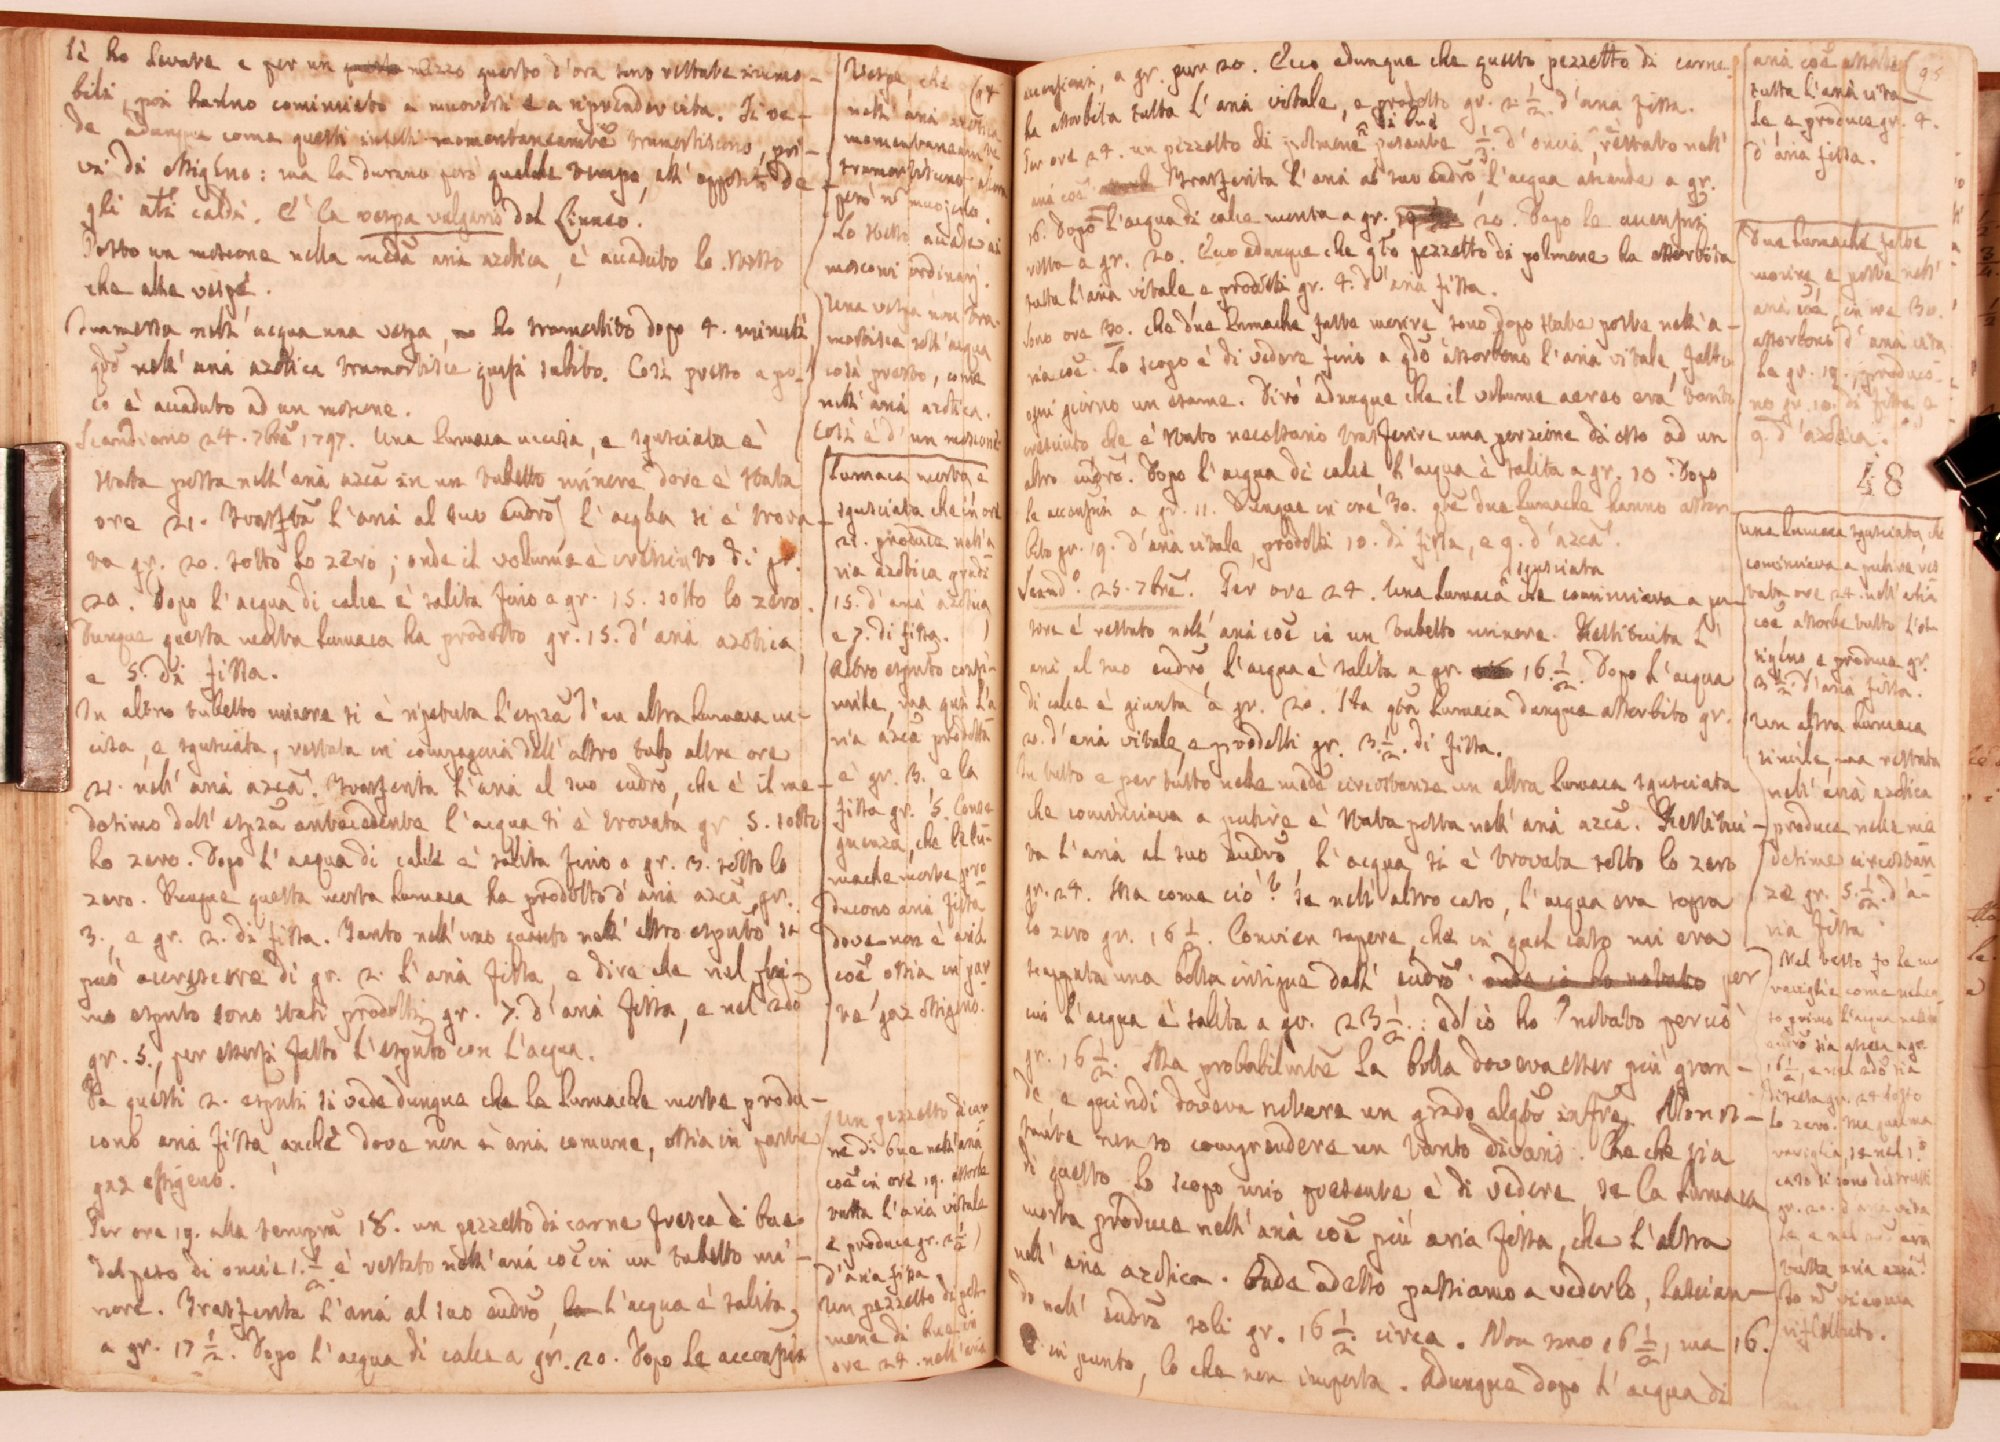 là ho levate e per un mezzo quarto d'ora sono restate immo-
bili, poi hanno cominciato a muoversi e a riprender vita. Si ve-
de adunque come questi insetti momentaneamẽte tramortiscono, pri-
vi di ossigeno: ma la durano però qualche tempo, all' opposto de-
gli altri caldi. È la vespa vulgaris del Linneo.
Posto un moscone nella meda aria azotica, è accaduto lo stesso
che alle vespe.
Immersa nell' acqua una vespa, ho tramortito dopo 4. minuti,
qdo nell' aria azotica tramortisce quasi subito. Così presto a po-
co è accaduto ad un moscone.
Scandiano 24. 7bre 1797. Una lumaca uccisa, e sgusciata è
stata posta nell' aria azca in un tubetto minore dove è stata
ore 21. l'aria al suo eudro l' acqua si è trova-
va gr. 20. sotto lo zero; onde il volume è cresciuto di gr.
20. Dopo l'acqua di calce è salita fino a gr. 15. sotto lo zero.
Dunque questa morta lumaca ha prodotto gr. 15. d' aria azotica,
e 5. di fissa.
In altro tubetto minore si è ripetuta l'espza d'un altra lumaca uc-
cisa, e sgusciata, restata in compagnia dell' altro tubo altre ore
21. nell' aria azca. Trasferita l'aria al suo eudro, che è il me-
desimo dell' espza antecedente l' acqua si è trovata gr 5. sotto
lo zero. Dopo l' acqua di calce è salita fino a gr. 3. sotto lo
zero. Dunque questa morta lumaca ha prodotto d' aria azca gr.
3., e gr. 2. di fissa. Tanto nell' uno quanto nell' altro esputo si
può accrescere di gr. 2. l' aria fissa, e dire che nel pri-
mo esputo sono stati prodotti gr. 7. d' aria fissa, e nel 2do
gr. 5., per essersi fatto l' esputo con l'acqua.
Da questi 2. esputi si vede dunque che le lumache morte produ-
cono aria fissa, anche dove non è aria comune, ossia in parte
gaz ossigeno.
Per ore 19. alla tempra 18. un pezzetto di carne fresca di bue
del peso di oncie 1. 1/2 è restato nell' aria coe in un tubetto mi-
nore. Trasferita l' aria al suo eudro, l' acqua è salita
a gr. 17 1/2. Dopo l' acqua di calce a gr. 20. Dopo le accensioi
Vespe, che
nell' aria azotica
momentaneamte
tramortiscono
però nõ muojono.
Lo stesso accade ai
mosconi ordinarj.
Una vespa non tra-
mortisce nell' acqua
così presto, come
nell' aria azotica.
Così è d' un moscone.
Lumaca morta e
sgusciata che in ore
21. produce nell' a
ria azotica gradi
15. d' aria azotica
e 7. di fissa.
Altro esputo consi-
mile, ma quà l'a
ria azca prodotta
è gr. 3. e la
fissa gr. 5. Conse
guenza, che le lu-
mache morte pro
ducono aria fissa
dove non è aria
coe ossia in par
te gaz ossigeno.
Un pezzetto di car
ne di bue nell' aria
coe in ore 19. assorbe
tutta l' aria vitale
e produce gr. 2 1/2
d' aria fissa.
Un pezzetto di pol-
mone di bue in
ore 24. nell' aria
accensioni, a gr. pur 20. Ecco adunque che questo pezzetto di carne
ha assorbita tutta l' aria vitale, e prodotto gr. 2 1/2. d' aria fissa.
di bue
Per ore 24. un pezzetto di polmone pesante 1/3. d' oncia, restato nell'
aria coe. Trasferita l' aria al suo eudro, l'acqua ascende a gr.
16. Dopo l'acqua di calce monta a gr. 20. Dopo le accensioi
resta a gr. 20. Ecco adunque che qto pezzetto di polmone ha assorbita
tutta l'aria vitale, e prodotti gr. 4. d' aria fissa.
Sono ore 30. che due lumache fatte morire sono dopo state poste nell' a-
ria coe. Lo scopo è di vedere fino a qdo assorbono l' aria vitale, fatto
ogni giorno un esame. Dirò adunque che il volume aereo era tanto
cresciuto che è stato necessario trasferire una porzione di esso ad un
altro eudro. Dopo l' acqua di calce, l'acqua è salita a gr. 10. Dopo
le accensioi a gr. 11. Dunque in ore 30. qte due lumache hanno assor-
bito gr. 19. d' aria vitale, prodotti 10. di fissa, e 9. d' azca.
sgusciata
Scando. 25. 7bre. Per ore 24. una lumaca che cominciava a pu-
tire è restata nell' aria coe in un tubetto minore. Restituita l'
aria al suo eudro, l'acqua è salita a gr. 16 1/2. Dopo l' acqua
di calce è giunta a gr. 20. Ha qta lumaca dunque assorbito gr.
20. d' aria vitale, e prodotti gr. 3. 1/2. di fissa.
In tutto e per tutto nelle mede circostanze un altra lumaca sgusciata
che cominciava a putire è stata posta nell' aria azca. Restitui-
ta l'aria al suo eudro, l' acqua si è trovata sotto lo zero
gr. 24. Ma come ciò? se nell' altro caso, l' acqua era sopra
lo zero gr. 16 1/2. Convien sapere che in quel caso mi era
scappata una bolla insigne dall' eudro. onde io ho notato per
cui l' acqua è salita a gr. 23 1/2.: ed io ho notato perciò
gr. 16 1/2. Ma probabilmte la bolla doveva esser più gran-
de, e quindi doveva notare un grado alqto infre. Non os-
tante non so comprendere un tanto divario. Che che sia
di questo lo scopo mio presente è di vedere, se la lumaca
morta produce nell' aria coe più aria fissa, che l' altra
nell' aria azotica. Onde adesso passiamo a vederlo, lascian-
do nell' eudro soli gr. 16 1/2 circa. Non sono 16 1/2, ma 16.
in punto, lo che non importa. Adunque dopo l' acqua di
95
aria coe assorbe
tutta l' aria vita
le e produce gr. 4.
d' aria fissa.
Due lumache fatte
morire e poste nell'
aria coe, in ore 30.
assorbono d' aria vita
le gr. 19., produco-
no gr. 10. di fissa e
9. d' azotica.
48
una lumaca sgusciata, che
cominciava a putire res
tata ore 24. nell' aria
coe assorbe tutto l' os-
sigeno e produce gr.
3 1/2. d' aria fissa.
Un altra lumaca
simile, ma restata
nell' aria azotica
produce nelle me
desime circostan
ze gr. 5. 1/2. d' a-
ria fissa.
Nel testo fo le me
raviglie come nel ca
so primo l'acqua nell'
eudro sia ascesa a gr.
16 1/2, e nel 2do sia
discesa gr. 24 sotto
lo zero. Ma qual ma
raviglia, se nel 1.o
caso si sono distrutti
gr. 20. d' aria vita
le e nel era
tutta aria azca.
riflettuto.